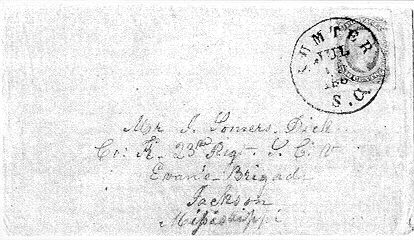 SUMTER
JUL
S.C.
Mr J. Somers. Dick
Co: K. 23rd Regt. S. C. V
Evan's Brigad
Jackson
Mississippi